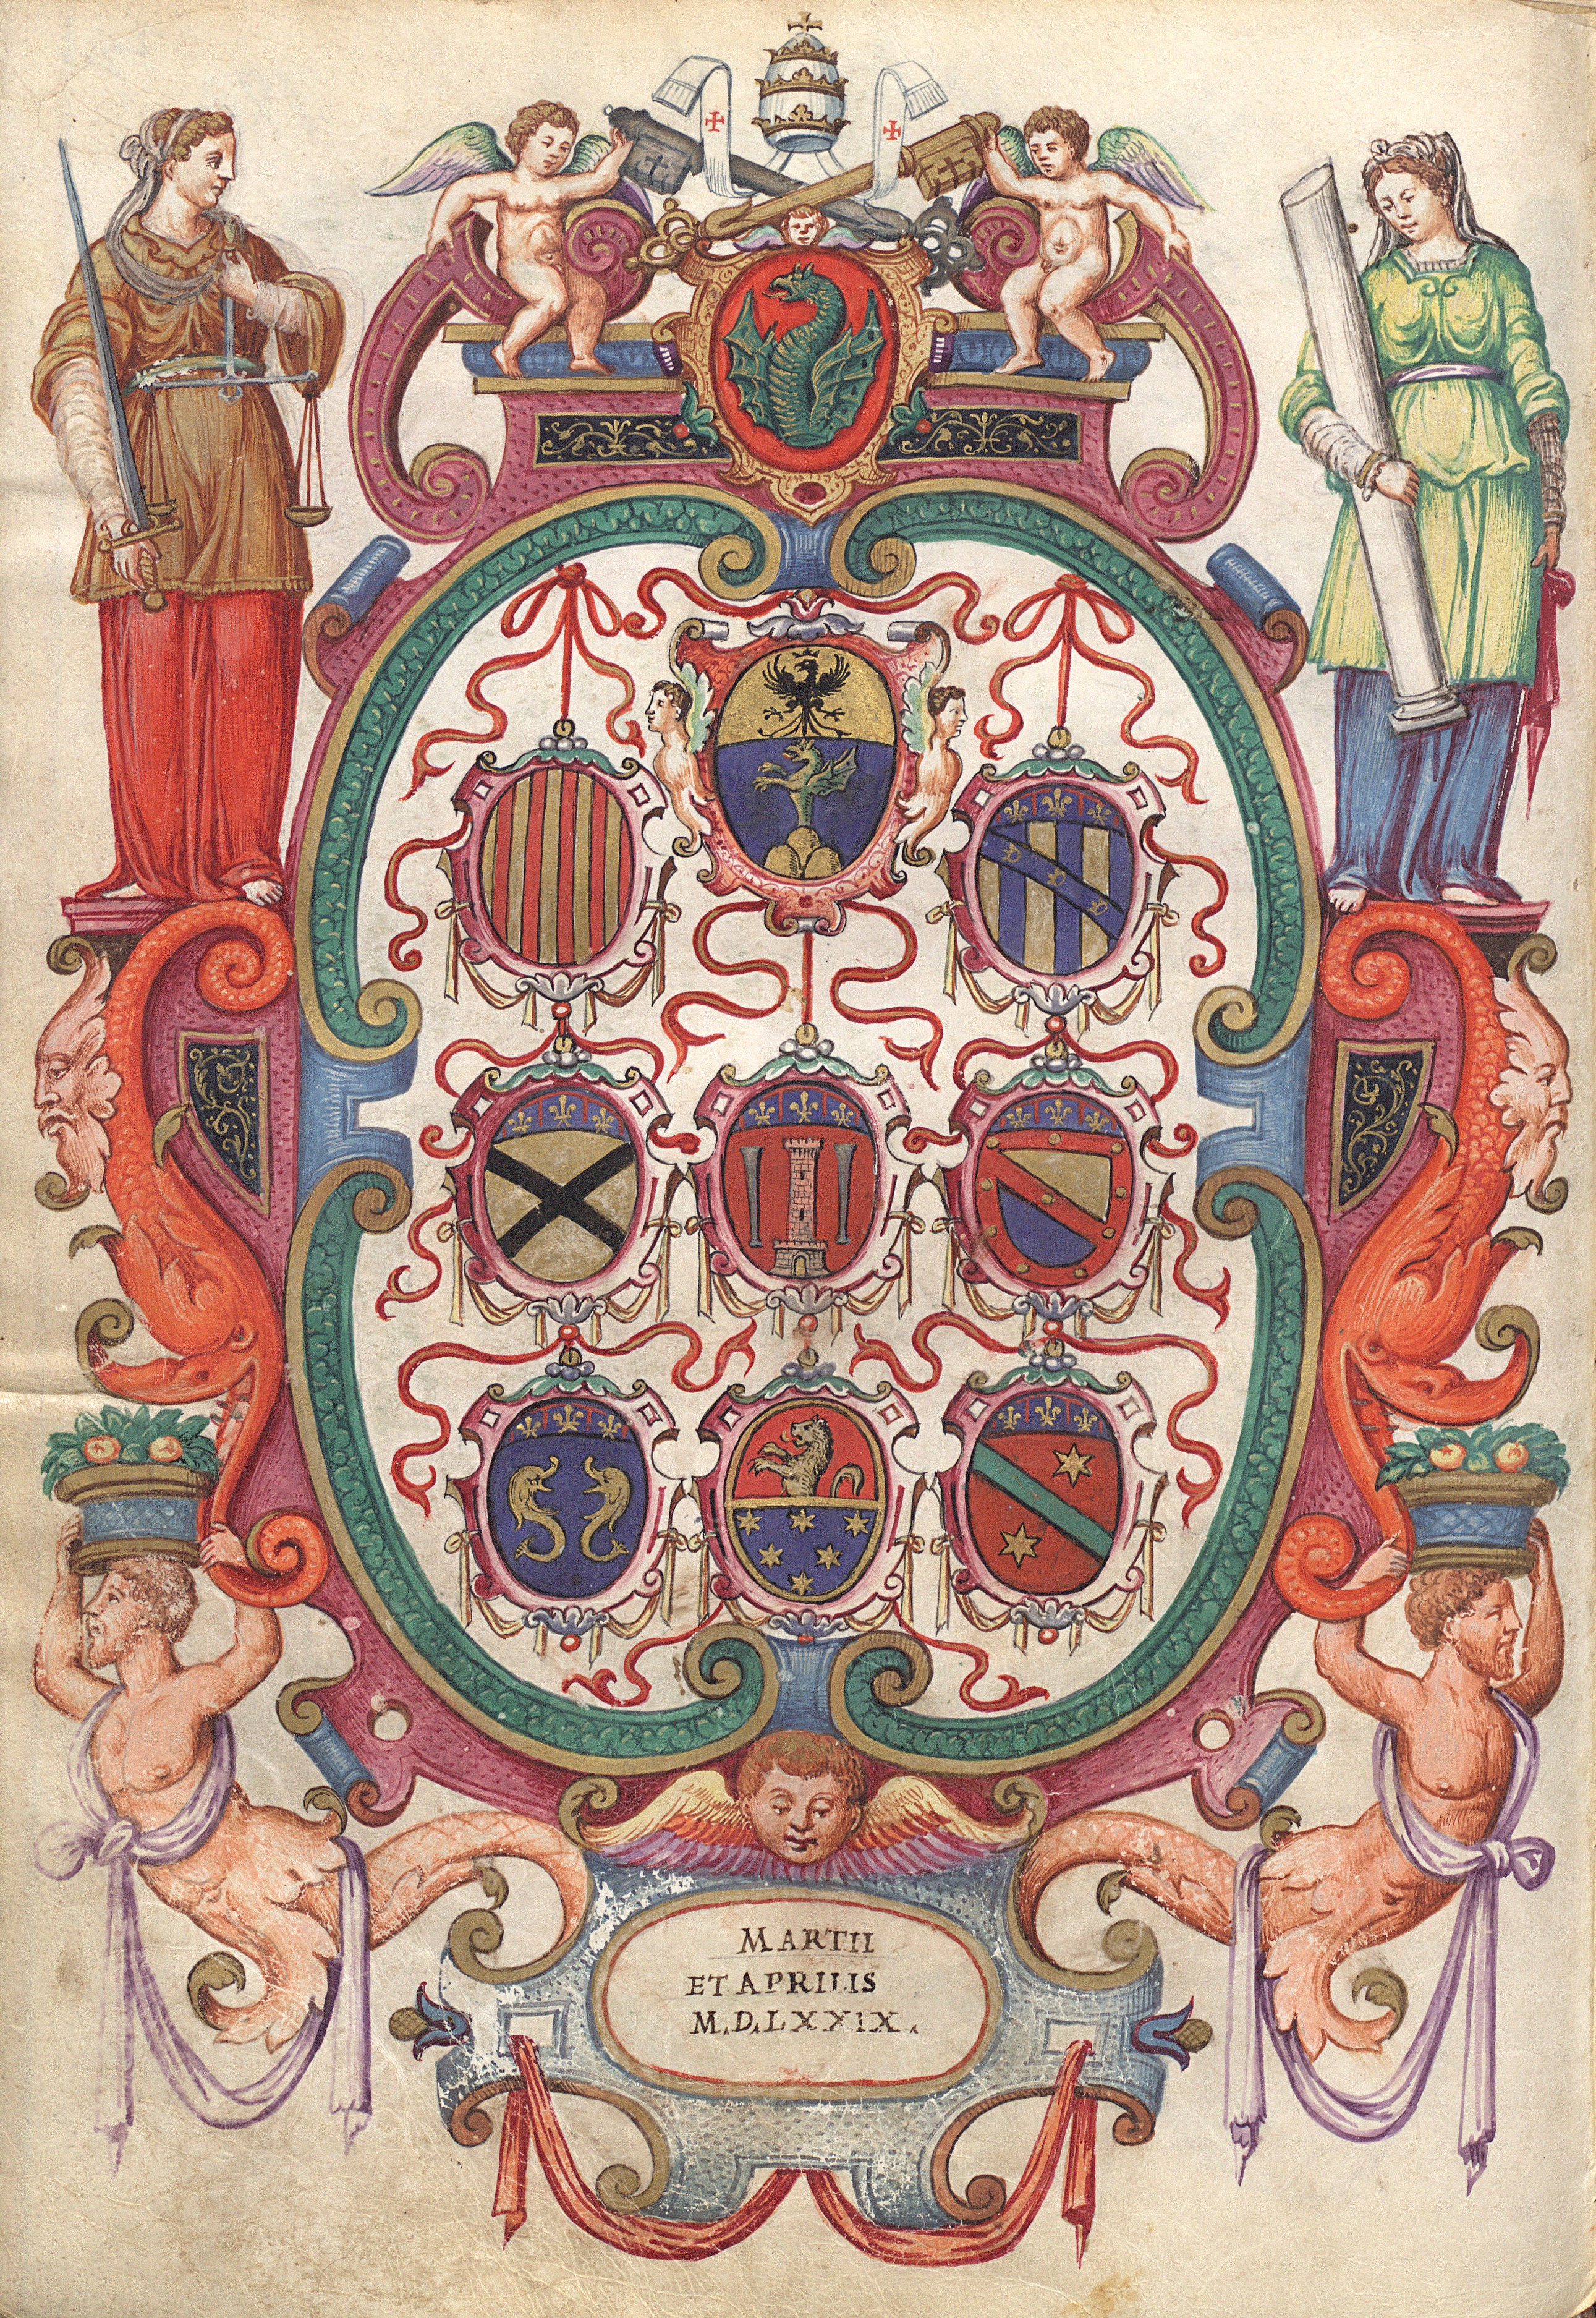 MARTII
ET APRILIS
M.D.LXXIX.